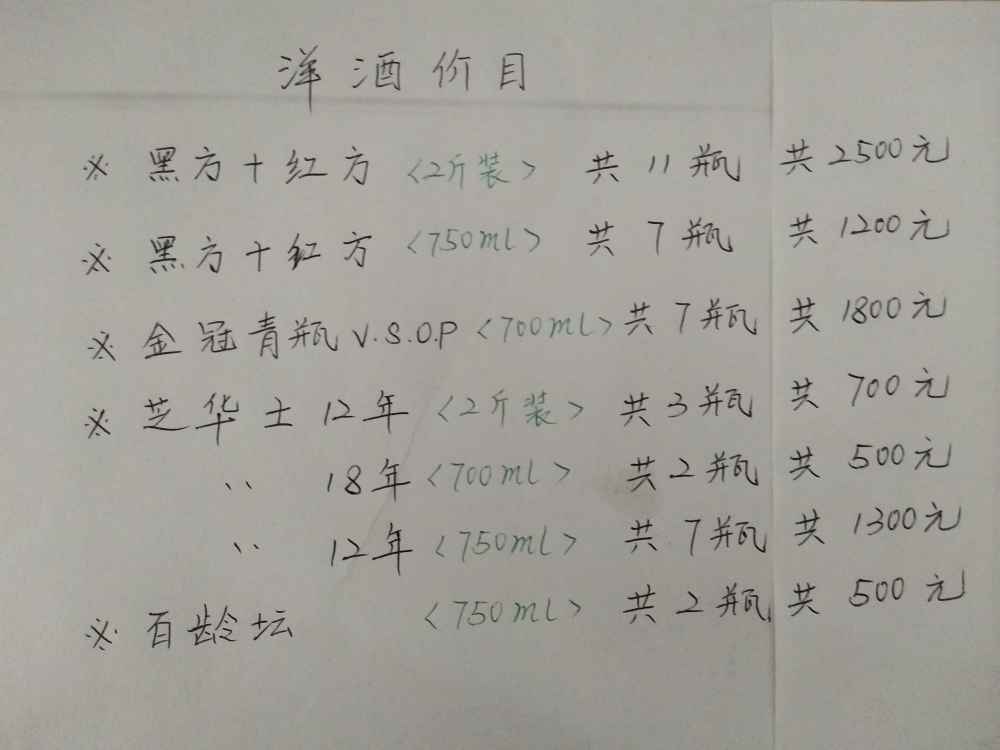 洋酒价目
※ 黑方十红方 <2斤装> 共11瓶 共2500元
※ 黑方十红方 <750ml> 共7瓶 共1200元
※ 金冠青瓶V.S.O.P <700ml> 共7瓶 共1800元
※ 芝华士12年 <2斤装> 共3瓶 共700元
〃 18年 <700ml> 共2瓶 共500元
〃 12年 <750ml> 共7瓶 共1300元
※ 百龄坛 <750ml> 共2瓶 共500元